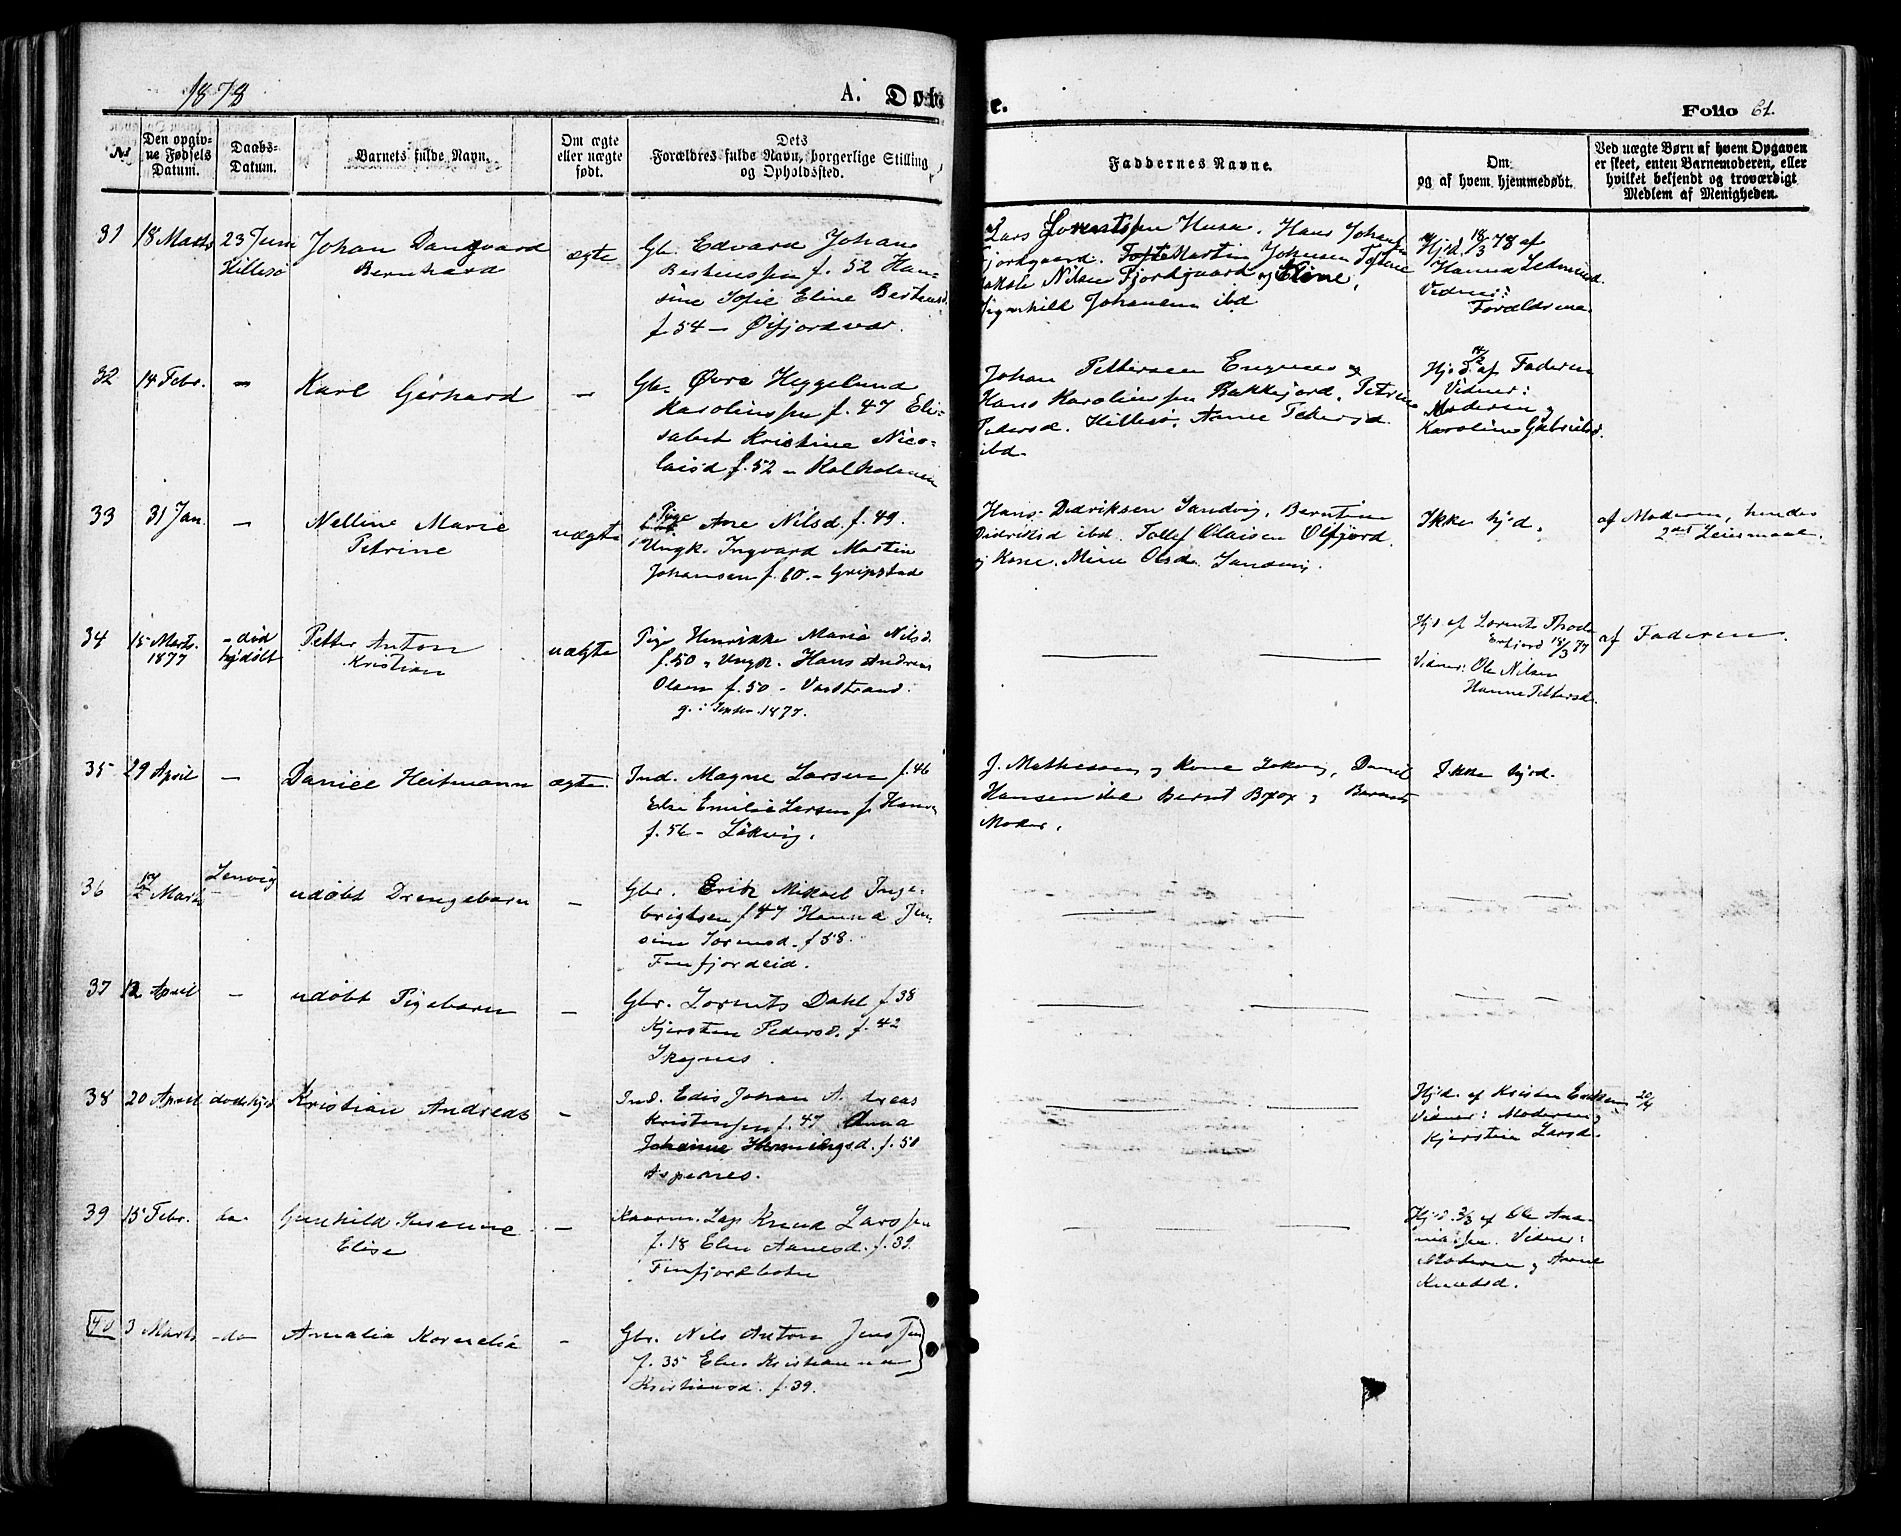 1878
A. Døbte.
Folio 61.
No
Den opgiv-
ne Fødsels
Datum.
Daabs-
Datum.
Barnets fulde Navn.
Om ægte
eller uægte
født.
Dets
Forældres fulde Navn, borgerlige Stilling
og Opholdssted.
Faddernes Navne.
Om
og af hvem hjemmedøbt.
Ved uægte Børn af hvem Opgaven
er skeet, enten Barnemoderen, eller
hvilket bekjendt og troværdigt
Medlem af Menigheden.
31
18 Marts
23 Juni
Hillesø
Johan Dangvard
Bernhard
ægte
Gbr. Edvard Johan
Berhenssen f. 52 Han-
sine Sofie Eline Berhensd.
f. 54 - Øifjordvær.
Lars Lorentssen Huse, Hans Johan
Fjordgaard. Martin Johnsen Toftene
Nilsen Fjordgaard og Eline,
Johansen ibd
Hjd. 18/3 78 af
Hanna
Vidner:
Forældrene
32
14 Febr.
-
Karl Gerhard
-
Gbr. Øvre Heggelund
Karolinssen f. 47 Eli-
sabet Kristine Nico-
laisd f. 52 - Kalholmen
Johan Pettersen Engenes og
Hans Karolinssen Bakkejord, Petrine
Pedersd. Hillesø, Anne Pedersd.
ibd.
Hjd. 14/2 af Faderen
Vidner:
Moderen og
Karoline Gabrielsd.
33
31 Jan.
-
Nelline Marie
Petrine
uægte
Pige Ane Nilsd. f. 49.
Ungk. Ingvard Martin
Johansen f. 60. - Gripstad
Hans Didriksen Sandvig, Berntine
Didriksd ibd. Tollef Olaisen Olfjord
og Kone. Mine Olsd. Sandvig.
Ikke hjd.
af Moderen, hendes
2det Leiermaal.
34
15 Marts
1877
- død
hjdøbt
Petter Anton
Kristian
uægte
Pige Henrikke Maria Nilsd.
f. 50 - Ungk. Hans Andreas
Olsen f. 50 - Vasstrand.
g. i Septbr. 1877.
Hjd af Lorents Thode
18/3 77
Vidner: Ole Nilsen
Hanna Pettersd.
af Faderen.
35
29 April
-
Daniel Heitmann
ægte.
Ind. Magne Larsen f. 46
Else Emilie Larsen f. Hans
f. 56 - Løkvig.
J. Mathesen og Kone Løkvig, Daniel
Hansen ibd Bernt Boxx og Barnets
Moder.
Ikke hjd.
36
Marts
Lenvig
udøbt Drengebarn
-
Gbr. Erik Mikael Inge-
brigtsen f 47 Hanna Jen-
sine Sorensd. f 58.
Finfjordeid.
37
12 April
-
udøbt Pigebarn
-
Gbr. Lorents Dahl f 38
Kjersten Pedersd. f. 42
Skognes.
38
20 April
død hjd
Kristian Andreas
-
Ind. Edis Johan Andreas
Kristenssen f. 47 Anna
Johanna Henningsd. f. 50
Aspenes.
Hjd. af Kristen Eriksen 20/4
Vidner: Moderen og
Kjerstin Larsd.
39
15 Febr.
do.
Gunhild Susanne
Elise
-
Kaarm. Lap Knud Larssen
f. 18 Elen Aanesd. f. 39.
Finfjordbotn
Hjd. 3/3 af Ole Ana-
niassen. Vidner:
Moderen og Anne
Knudsd.
40
3 Marts
- do
Amalia Kornelia
-
Gbr. Nils Anton Jenssen
f. 35 Elen Kristianna
Kristiansd. f. 39.